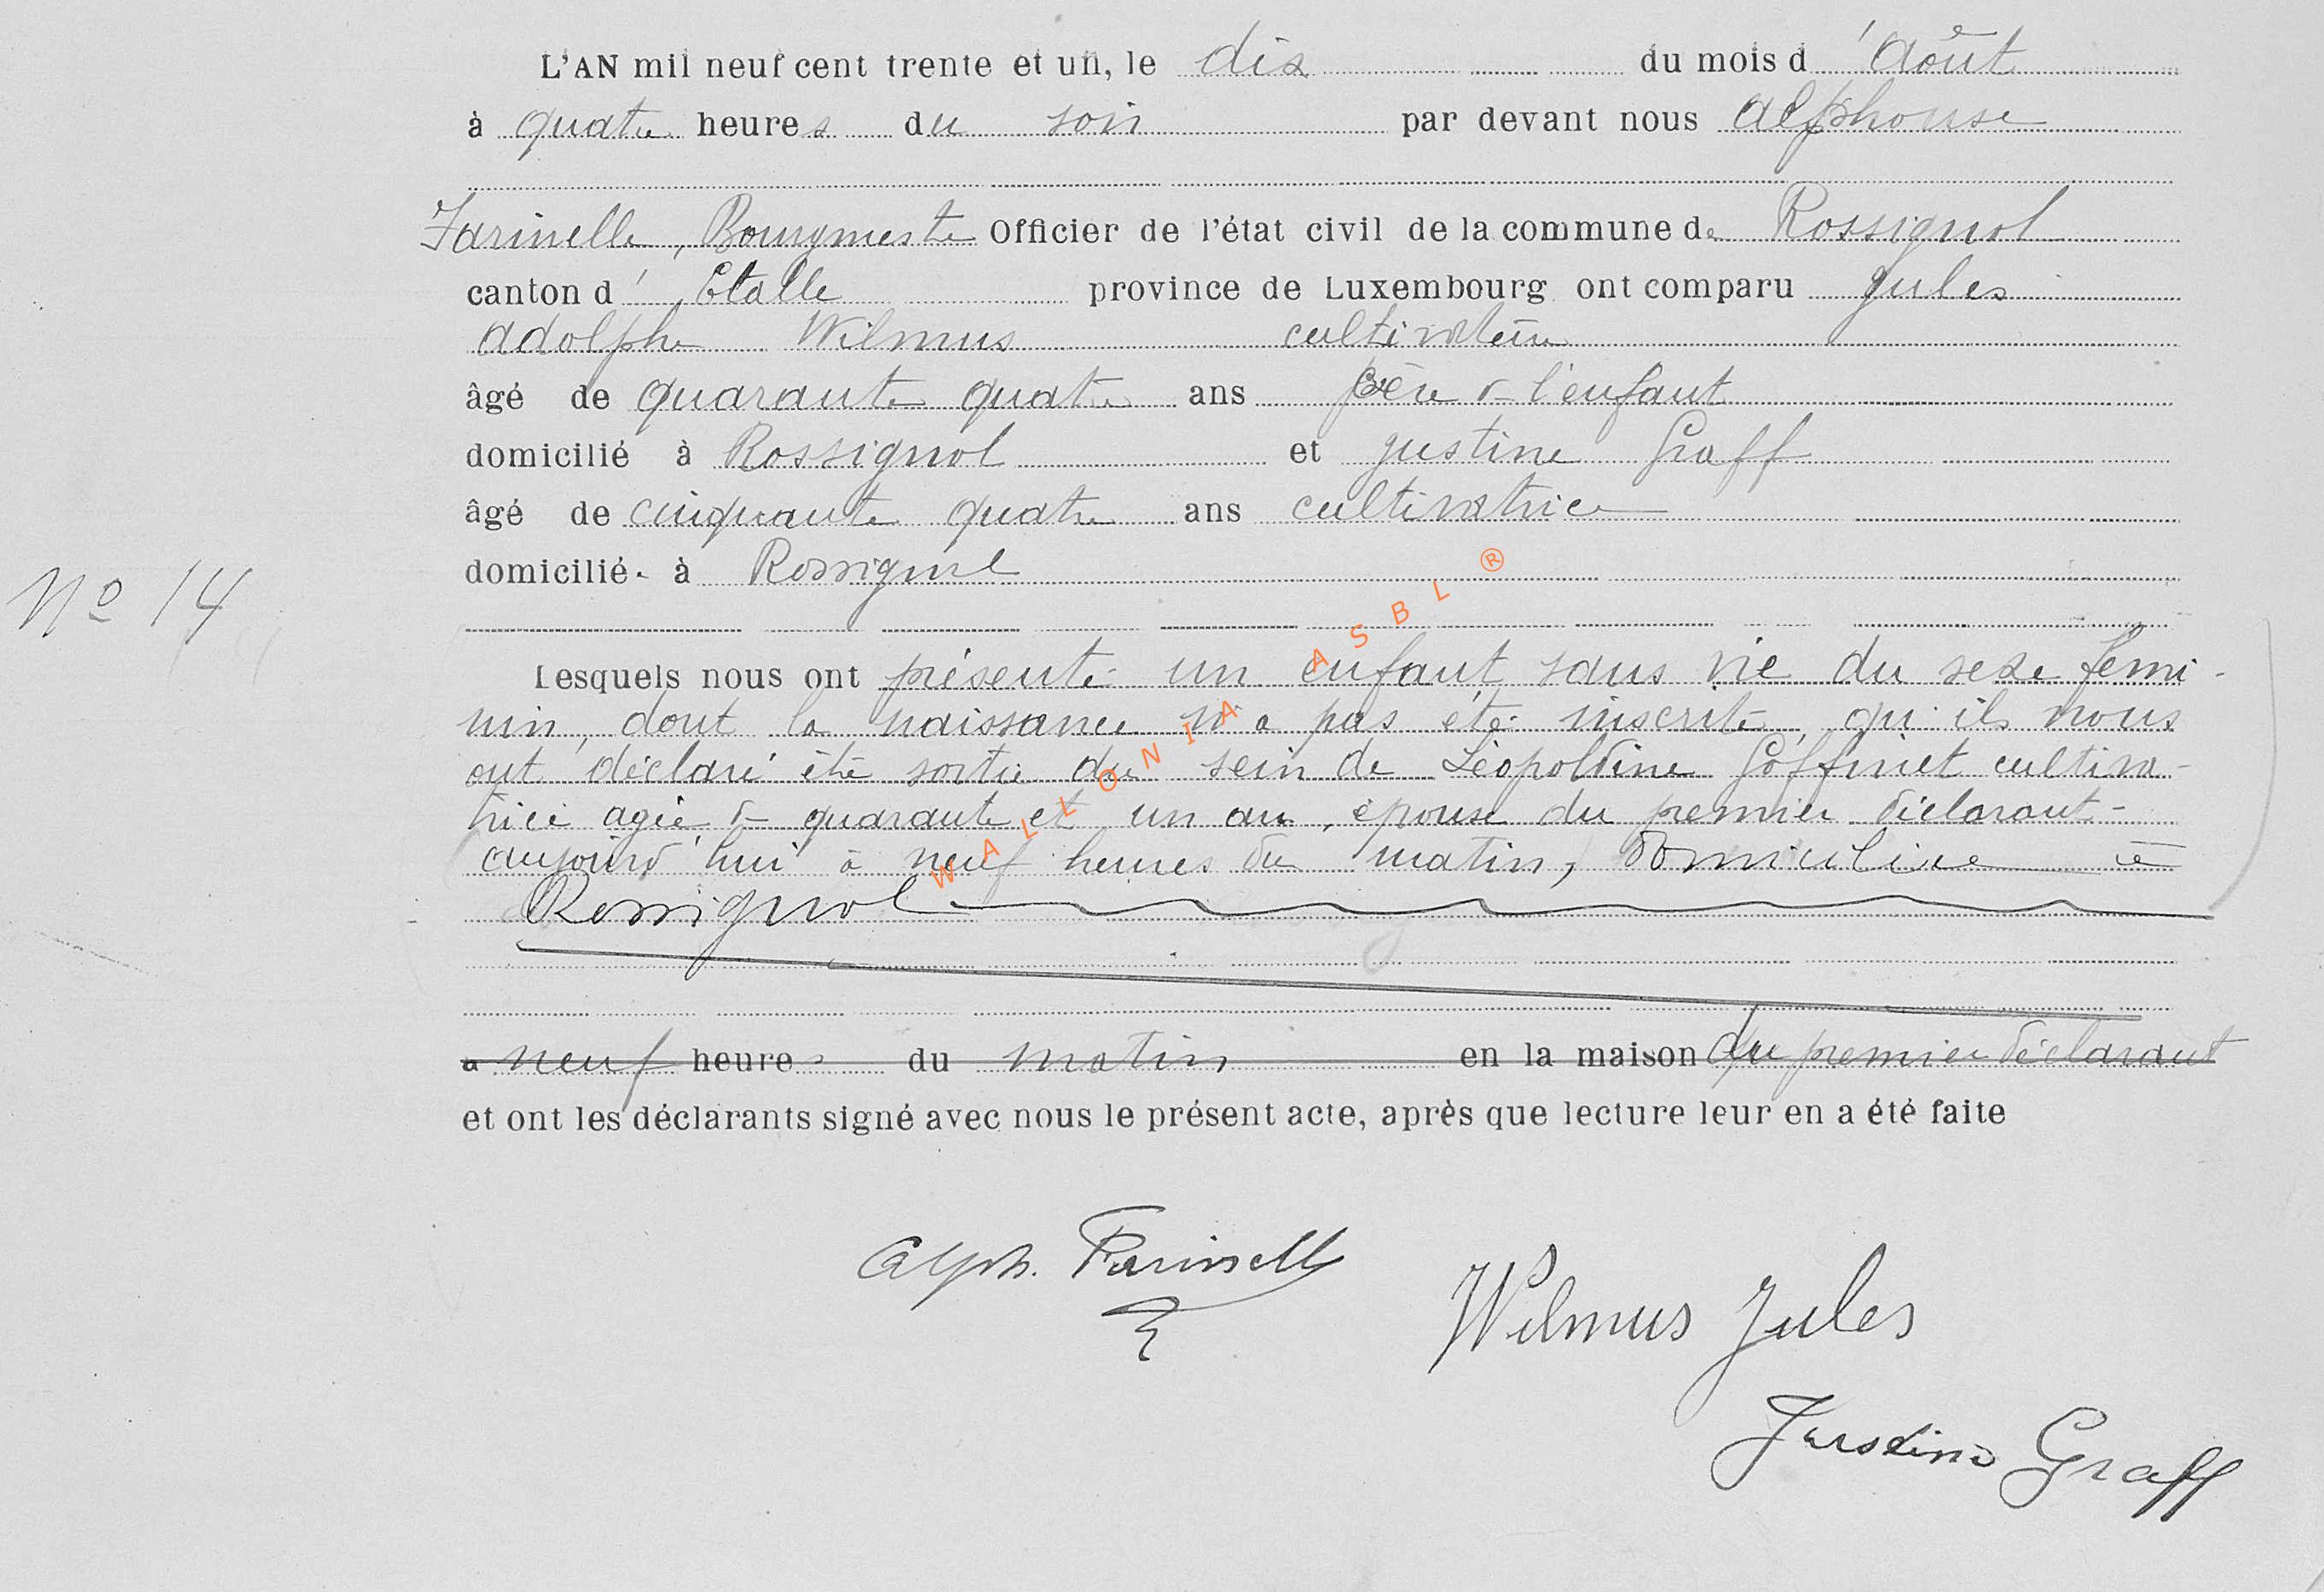 L'AN mil neuf cent trente et un, le dix du mois d'Août
à quatre heures du soir par devant nous Alphonse
Farinelle, Bourgmestre Officier de l'état civil de la commune de Rossignol
canton d'Etalle province de Luxembourg ont comparu Jules
Adolphe Wilmus cultivateur
âgé de quarante quatre ans père de l'enfant
domicilié à Rossignol et Justine Graff
âgé de cinquante quatre ans cultivatrice
domicilié à Rossignol
N° 14
Lesquels nous ont présenté un enfant sans vie du sexe fémi-
nin, dont la naissance n'a pas été inscrite, qu'ils nous
ont déclaré être sortie du sein de Léopoldine Goffinet cultiva-
trice agée de quarante et un ans, épouse du premier déclarant-
aujourd'hui à neuf heures du matin, domiciliée à
Rossignol
à neuf heures du matin en la maison du premier déclarant
et ont les déclarants signé avec nous le présent acte, après que lecture leur en a été faite
Alph. Farinelle
Wilmus Jules
Justine Graff
WALLONIA ASBL ®